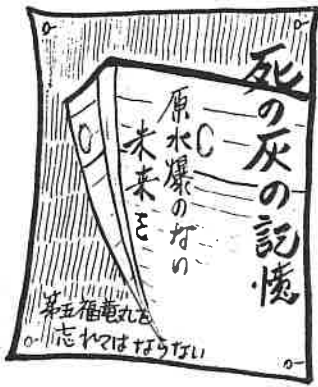 死の灰の記憶
原水爆のない
未来を
第五福竜丸を
忘れてはならない